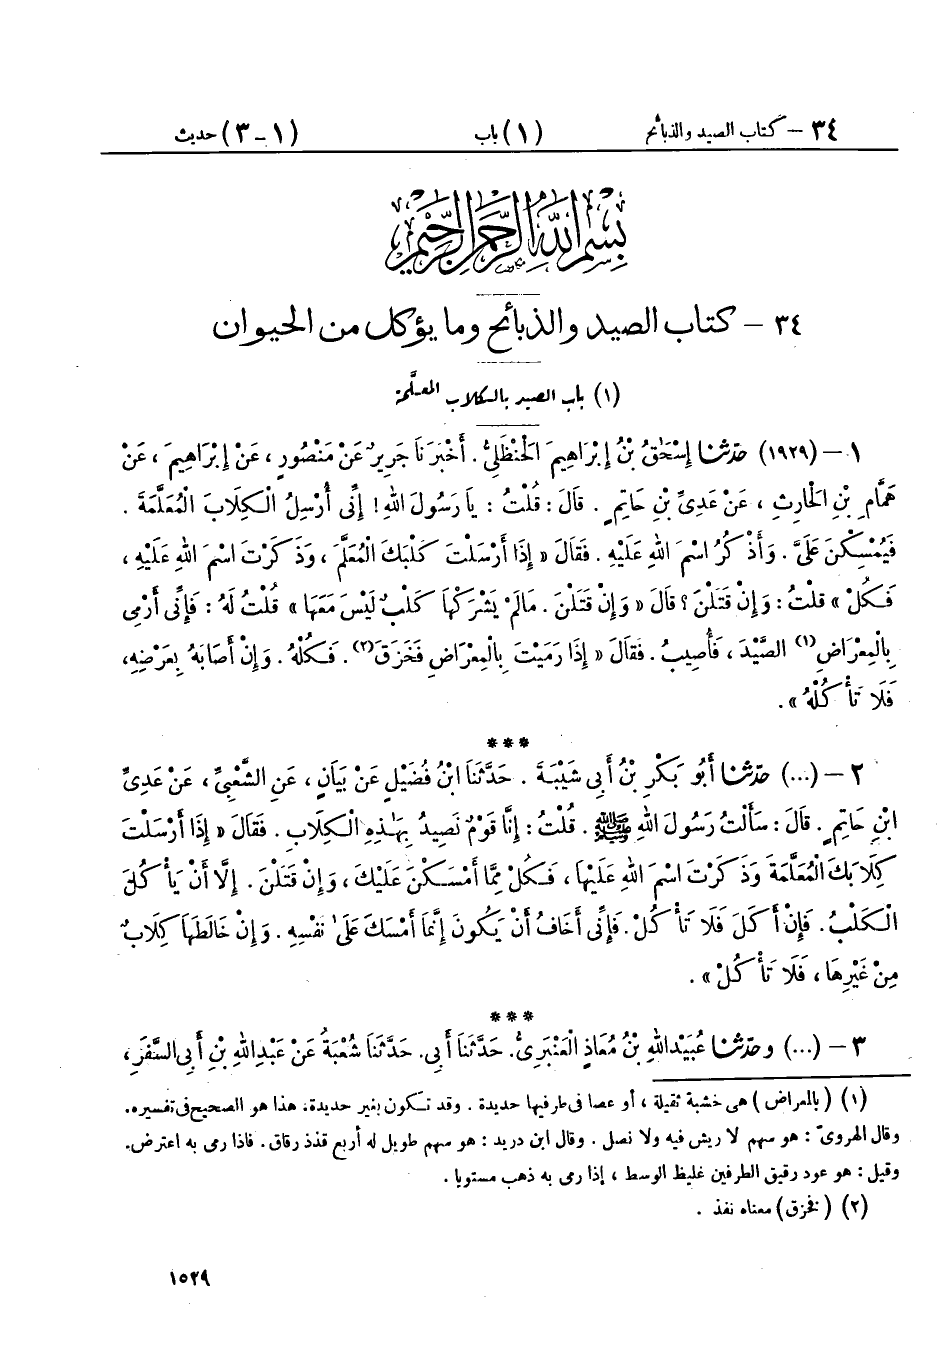 ٣٤ – كتاب الصيد والذبائح (١) باب (١ – ٣) حديث
بسم الله الرحمن الرحيم
٣٤ – كتاب الصيد والذبائح وما يؤكل من الحيوان
(١) باب الصيد بالكلاب المعلَّمة
١ – (١٩٢٩) حدّثنا إِسْحَٰقُ بْنُ إِبْرَاهِيمَ الْحَنْظَلِيُّ . أَخْبَرَنَا جَرِيرٌ عَنْ مَنْصُورٍ ، عَنْ إِبْرَاهِيمَ ، عَنْ
هَمَّامِ بْنِ الْحَارِثِ ، عَنْ عَدِىِّ بْنِ حَاتِمٍ . قَالَ : قُلْتُ : يَا رَسُولَ اللهِ ! إِنِّى أُرْسِلُ الْكِلَابَ الْمُعَلَّمَةَ .
فَيُمْسِكْنَ عَلَىَّ . وَأَذْكُرُ اسْمَ اللهِ عَلَيْهِ . فَقَالَ « إِذَا أَرْسَلْتَ كَلْبَكَ الْمُعَلَّمَ ، وَذَكَرْتَ اسْمَ اللهِ عَلَيْهِ ،
فَكُلْ » قلتُ : وَإِنْ قَتَلْنَ ؟ قَالَ « وَإِنْ قَتَلْنَ . مَالَمْ يَشْرَكْهَا كَلْبٌ لَيْسَ مَعَهَا » قُلْتُ لَهُ : فَإِنِّى أَرْمِى
بِالْمِعْرَاضِ(١) الصَّيْدَ ، فَأُصِيبُ . فَقَالَ « إِذَا رَمَيْتَ بِالْمِعْرَاضِ فَخَزَقَ(٢) . فَكُلْهُ . وَإِنْ أَصَابَهُ بِعَرْضِهِ،
فَلَا تَأْكُلْهُ » .
***
٢ – (...) حدّثنا أَبُو بَكْرِ بْنُ أَبِى شَيْبَةَ . حَدَّثَنَا ابْنُ فُضَيْلٍ عَنْ بَيَانٍ ، عَنِ الشَّعْبِىِّ ، عَنْ عَدِىِّ
ابْنِ حَاتِمٍ . قَالَ : سَأَلْتُ رَسُولَ اللهِ ﷺ . قُلْتُ : إِنَّا قَوْمٌ نَصِيدُ بِهَٰذِهِ الْكِلَابِ . فَقَالَ « إِذَا أَرْسَلْتَ
كِلَابَكَ الْمُعَلَّمَةَ وَذَكَرْتَ اسْمَ اللهِ عَلَيْهَا ، فَكُلْ مِمَّا أَمْسَكْنَ عَلَيْكَ ، وَإِنْ قَتَلْنَ . إِلَّا أَنْ يَأْكُلَ
الْكَلْبُ . فَإِنْ أَكَلَ فَلَا تَأْكُلْ . فَإِنِّى أَخَافُ أَنْ يَكُونَ إِنَّمَا أَمْسَكَ عَلَىٰ نَفْسِهِ . وَإِنْ خَالَطَهَا كِلَابٌ
مِنْ غَيْرِهَا ، فَلَا تَأْكُلْ » .
***
٣ – (...) وحدّثنا عُبَيْدُاللهِ بْنُ مُعَاذٍ الْعَنْبَرِىُّ. حَدَّثَنَا أَبِى. حَدَّثَنَا شُعْبَةُ عَنْ عَبْدِاللهِ بْنِ أَبِى السَّفَرِ ،
(١) ( بالمعراض ) هى خشبة ثقيلة ، أو عصا فى طرفها حديدة . وقد تكون بغير حديدة. هذا هو الصحيح فى تفسيره.
وقال الهروىّ : هو سهم لا ريش فيه ولا نصل . وقال ابن دريد : هو سهم طويل له أربع قذذ رقاق . فاذا رمى به اعترض.
وقيل : هو عود رقيق الطرفين غليظ الوسط ، إذا رمى به ذهب مستويا .
(٢) ( فخزق ) معناه نفذ .
١٥٢٩